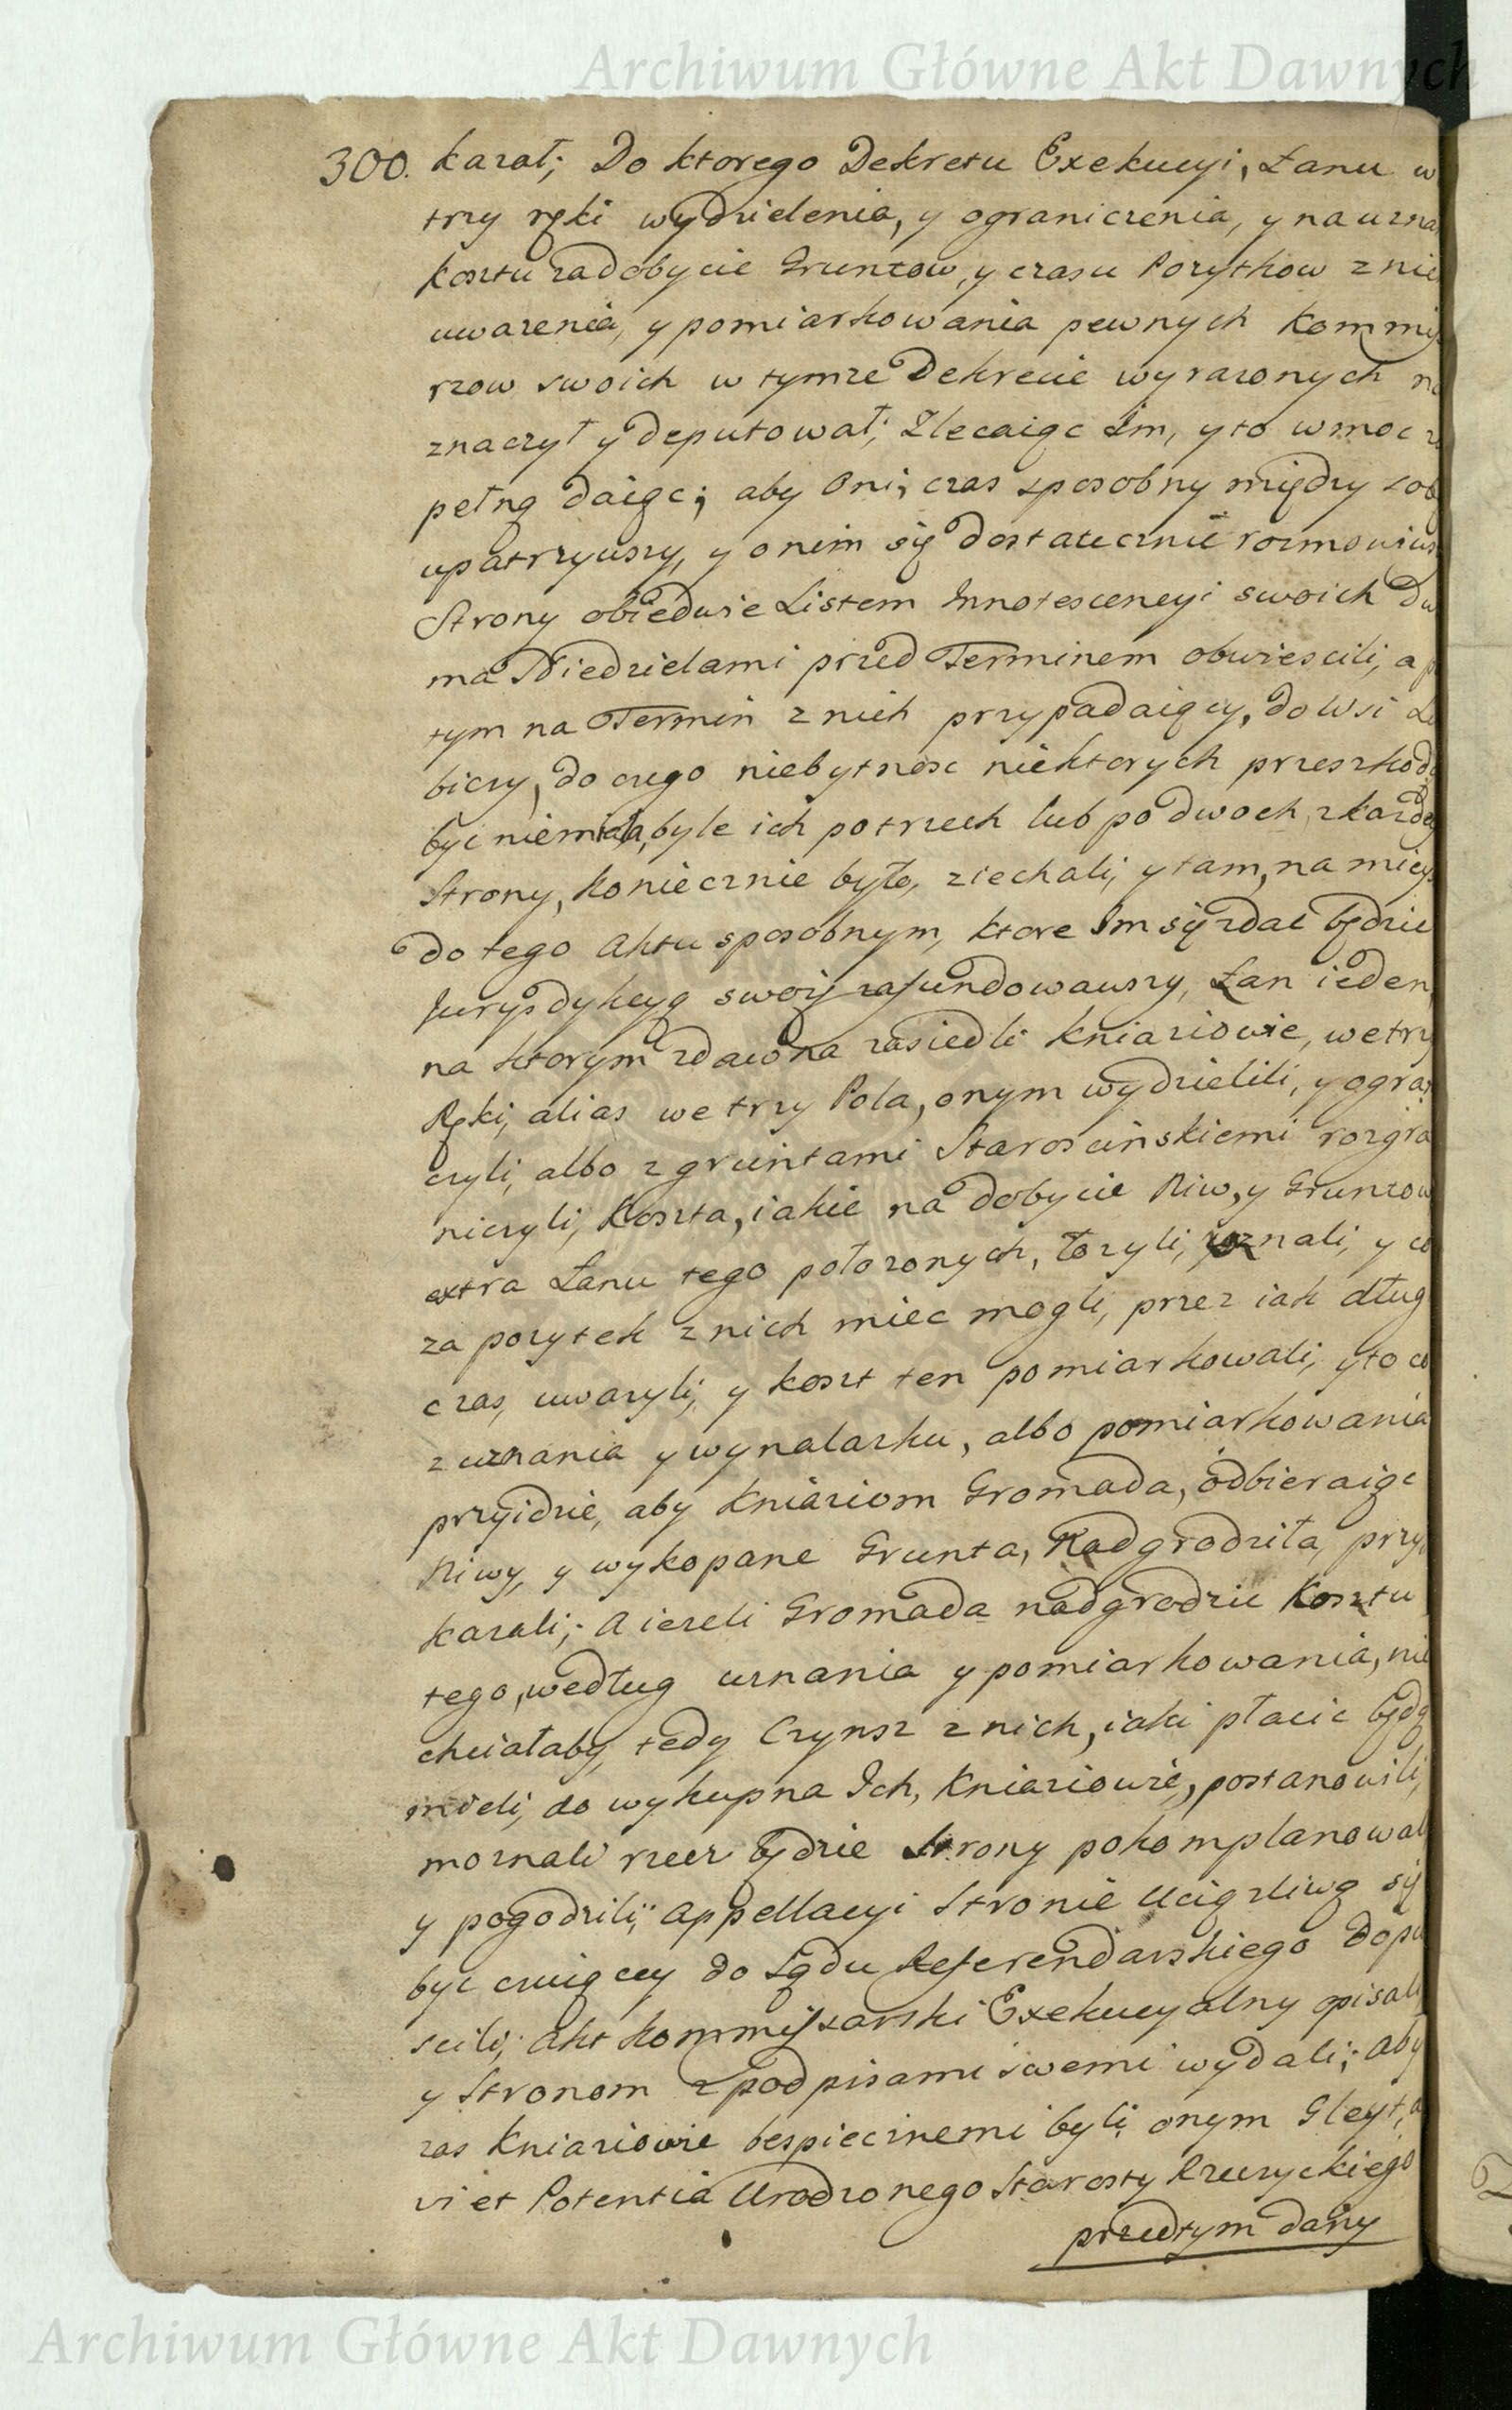 Archiwum Główne Akt Dawnych
300. kazał; Do ktorego Dekretu Exekucyi, Łanu w
trzy ręki wydzielenia, y ograniczenia, y na uzna
kosztu za dobycie Gruntow, y czasu Pozytkow z nie
uwazenia, y pomiarkowania pewnych Kommis
rzow swoich w tymze Dekrecie wyrazonych na
znaczył y deputował; Zlecaiąc Im, y to w moc z
pełną daiąc; aby Oni, czas sposobny między sob
upatrzywszy, y o nim się dostatecznie rozmowiws
Strony obiedwie Listem Innotescencyi swoich Dw
ma Niedzielami przed Terminem obwiescili, a p
tym na Termin z nich przypadaiący, do Wsi Lu
biczy, do czego niebytnosc niektorych przeszkodą
być niemiała, byle ich po trzech lub po dwoch z kazdey
Strony, koniecznie było, ziechali, y tam, na mieys
do tego Aktu sposobnym, ktore Im się zdać będzie
Jurysdykcyą swoię zafundowawszy, Łan ieden,
na ktorym zdawna zasiedli Kniaziowie, we trzy
Ręki, alias we trzy Pola, onym wydzielili, y ogran
czyli, albo z gruntami Staroscinskiemi rozgra
niczyli, Koszta, iakie na dobycie Niw, y Gruntow
extra Łanu tego połozonych, łozyli, uznali, y co
za pozytek z nich miec mogli, przez iak długi
czas, uwazyli, y koszt ten pomiarkowali, y to co
z uznania y wynalazku, albo pomiarkowania
przyidzie, aby Kniaziom Gromada, odbieraiąc
Niwy, y wykopane Grunta, Nadgrodziła, przy
kazali; A iezeli Gromada nadgrodzic Kosztu
tego, według uznania y pomiarkowania, nie
chciałaby, tedy Czynsz z nich, iaki płacic będą
mieli, do wykupna Ich, Kniaziowie, postanowili,
moznali rzecz będzie Strony pokomplanowali
y pogodzili; Appellacyi Stronie Uciązliwą się
być czuiącey do Sądu Referendarskiego dopu
scili; Akt Kommissarski Exekucyalny opisali
y Stronom z podpisami swemi wydali; Aby
zas Kniaziowie bespiecznemi byli, onym Gleyt, a
vi et Potentia Urodzonego Starosty Rzeczyckiego
przedtym dany
Archiwum Główne Akt Dawnych